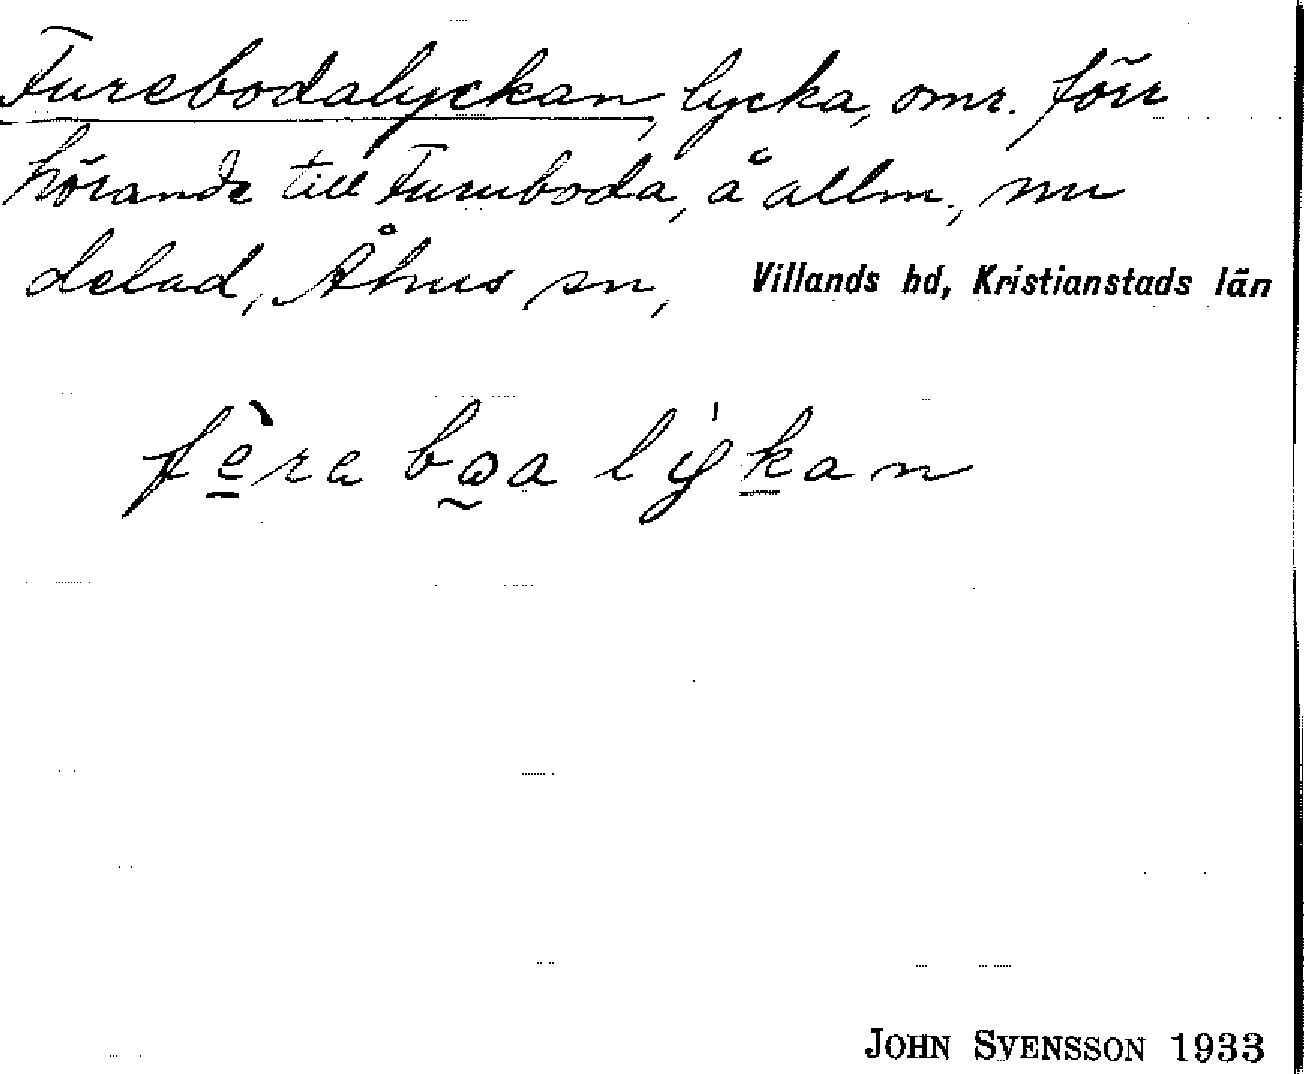 Furebodalyckan, lycka, omr. förr
hörande till Furuboda, å allm., nu
delad, Åhus sn, Villands hd, Kristianstads län
fèrabοa lýkan
JOHN SVENSSON 1933